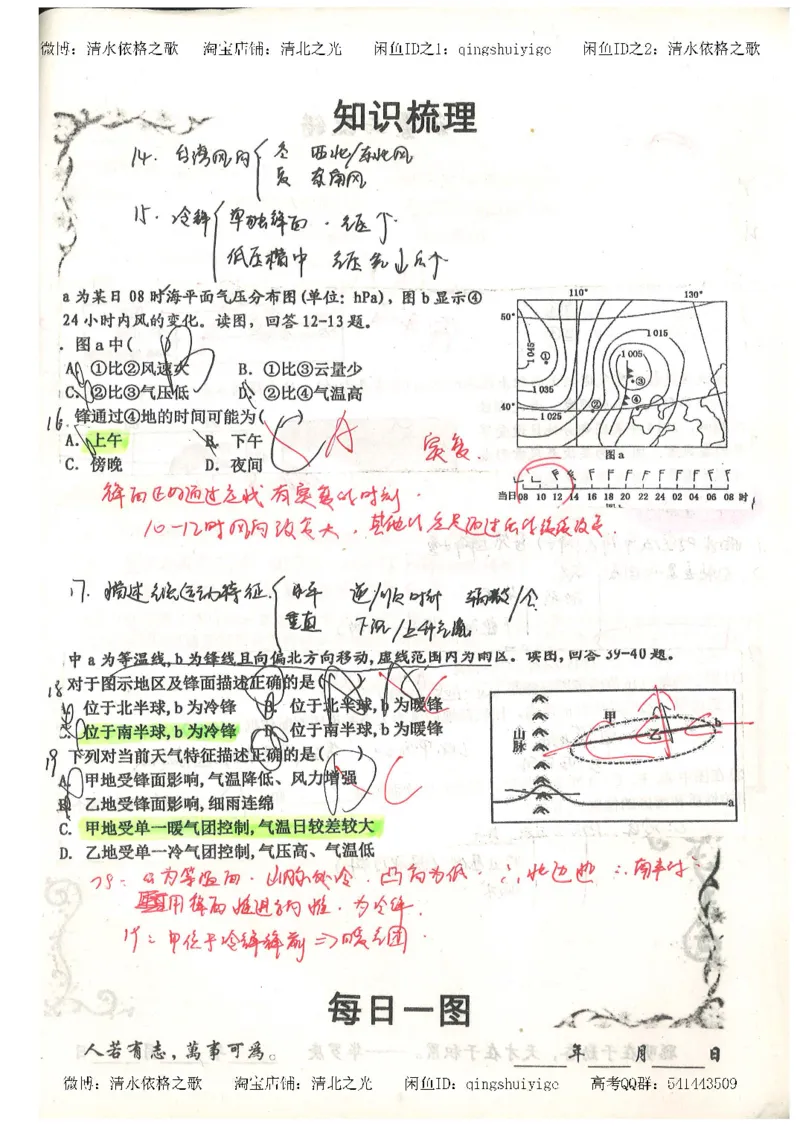 微博：清水依格之歌 淘宝店铺：清北之光 闲鱼ID之1：qingshuiyige 闲鱼ID之2：清水依格之歌
知识梳理
14. 台湾风向 冬 西北/东北风
夏 东南风
15. 冷锋 单独锋面 · 气压个
低压槽中 气压先↓后个
a为某日08时海平面气压分布图(单位：hPa)，图b显示④
24小时内风的变化。读图，回答12-13题。
. 图a中( ) B
A. ①比②风速大 B. ①比③云量少
C. ②比③气压低 D. ②比④气温高
16. 锋通过④地的时间可能为( ) A
A. 上午 B. 下午
C. 傍晚 D. 夜间
110° 130°
50°
40°
1045
1035
1025
1015
1005
①
②
③
④
图a
当日08 10 12 14 16 18 20 22 24 02 04 06 08 时
突变.
17. 描述气流运动特征. 水平 逆/顺时针 辐散/合
垂直 下沉/上升气流
中a为等温线,b为锋线且向偏北方向移动,虚线范围内为雨区。读图,回答39-40题。
18 对于图示地区及锋面描述正确的是( ) C
A. 位于北半球,b为冷锋 B. 位于北半球,b为暖锋
C. 位于南半球,b为冷锋 D. 位于南半球,b为暖锋
19 下列对当前天气特征描述正确的是( ) C
A. 甲地受锋面影响,气温降低、风力增强
B. 乙地受锋面影响,细雨连绵
C. 甲地受单一暖气团控制,气温日较差较大
D. 乙地受单一冷气团控制,气压高、气温低
山脉
甲
乙
b
a
用锋面推进方向推. 为冷锋.
19: 甲位于冷锋锋前 ⇒ 暖气团.
每日一图
人若有志，萬事可為。
年 月 日
微博：清水依格之歌 淘宝店铺：清北之光 闲鱼ID：qingshuiyige 高考QQ群：541443509